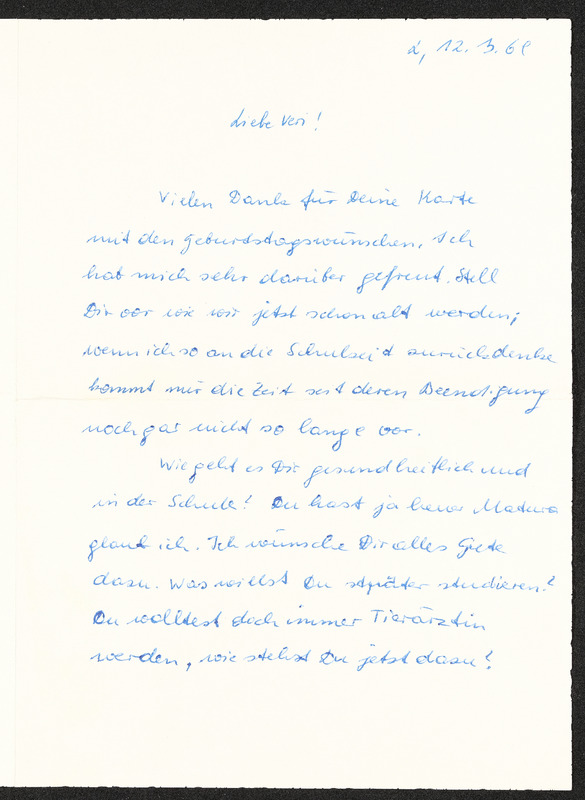 L, 12. 3. 68
Liebe Veri!
Vielen Dank für Deine Karte
mit den Geburtstagswünschen, Ich
hab mich sehr darüber gefreut. Stell
Dir vor wie wir jetzt schon alt werden;
wenn ich so an die Schulzeit zurückdenke
kommt mir die Zeit seit deren Beendigung
noch gar nicht so lange vor.
Wie geht es Dir gesundheitlich und
in der Schule? Du hast ja heuer Matura
glaub ich. Ich wünsche Dir alles Gute
dazu. Was willst Du später studieren?
Du wolltest dich immer Tierärztin
werden, wie stehst Du jetzt dazu?